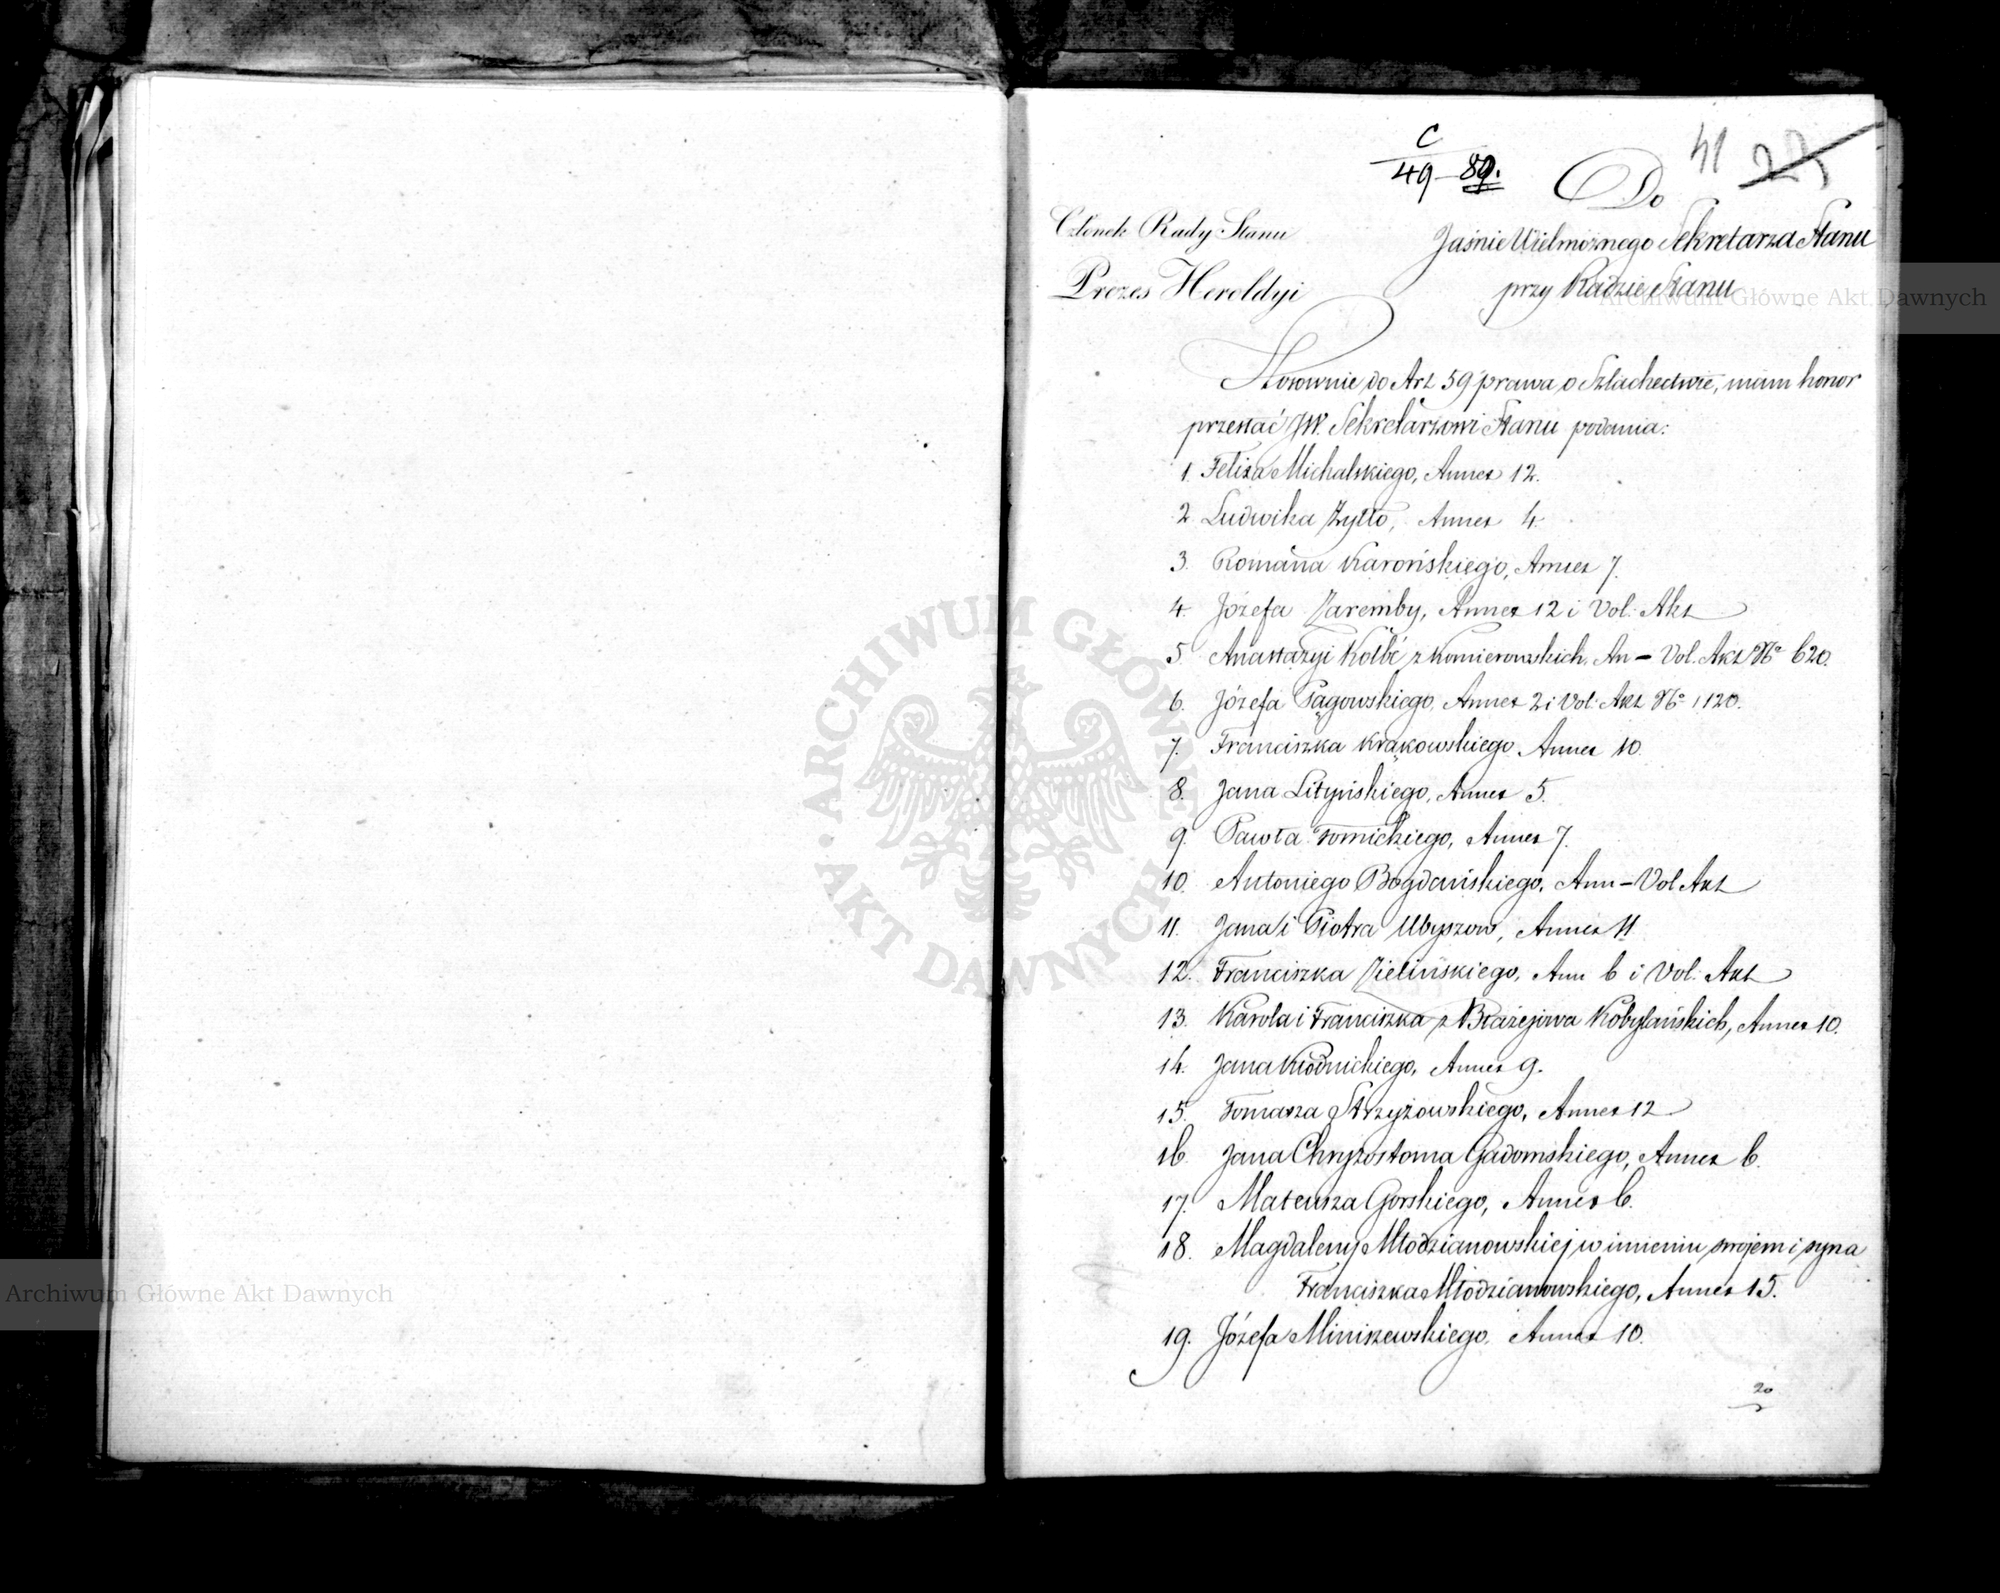 C
49–89.
41 27
Do
Członek Rady Stanu
Jaśnie Wielmożnego Sekretarza Stanu
Prezes Heroldyi
przy Radzie Stanu
Archiwum Główne Akt Dawnych
Stosownie do Art 59 prawa o Szlachectwie, mam honor
przesłać JW. Sekretarzowi Stanu podania:
1. Felixa Michalskiego, Annex 12.
2. Ludwika Żyłło, Annex 4.
3. Romana Karońskiego, Annex 7.
4. Józefa Zaremby, Annex 12 i Vol. Akt
5. Anastazyi Kolbe z Komierowskich, An – Vol. Akt No 620.
6. Józefa Pągowskiego, Annex 2 i Vol. Akt No 1120.
7. Franciszka Krąkowskiego Annex 10.
8. Jana Lityńskiego, Annex 5.
9. Pawła Tomickiego, Annex 7.
10. Antoniego Bogdańskiego, Ann – Vol Akt
11. Jana i Piotra Ubyszow, Annex 11
12. Franciszka Zielińskiego, Ann 6 i Vol. Akt
13. Karola i Franciszka z Błażejowa Kobylańskich, Annex 10.
14. Jana Kłodnickiego, Annex 9.
15. Tomasza Strzyżowskiego, Annex 12
16. Jana Chryzostoma Gadomskiego, Annex 6.
17. Mateusza Gorskiego, Annex 6.
18. Magdaleny Młodzianowskiej w imieniu swojem i syna
Franciszka Młodzianowskiego, Annex 15.
19. Józefa Miniszewskiego, Annex 10.
20
ARCHIWUM GŁÓWNE
AKT DAWNYCH
Archiwum Główne Akt Dawnych